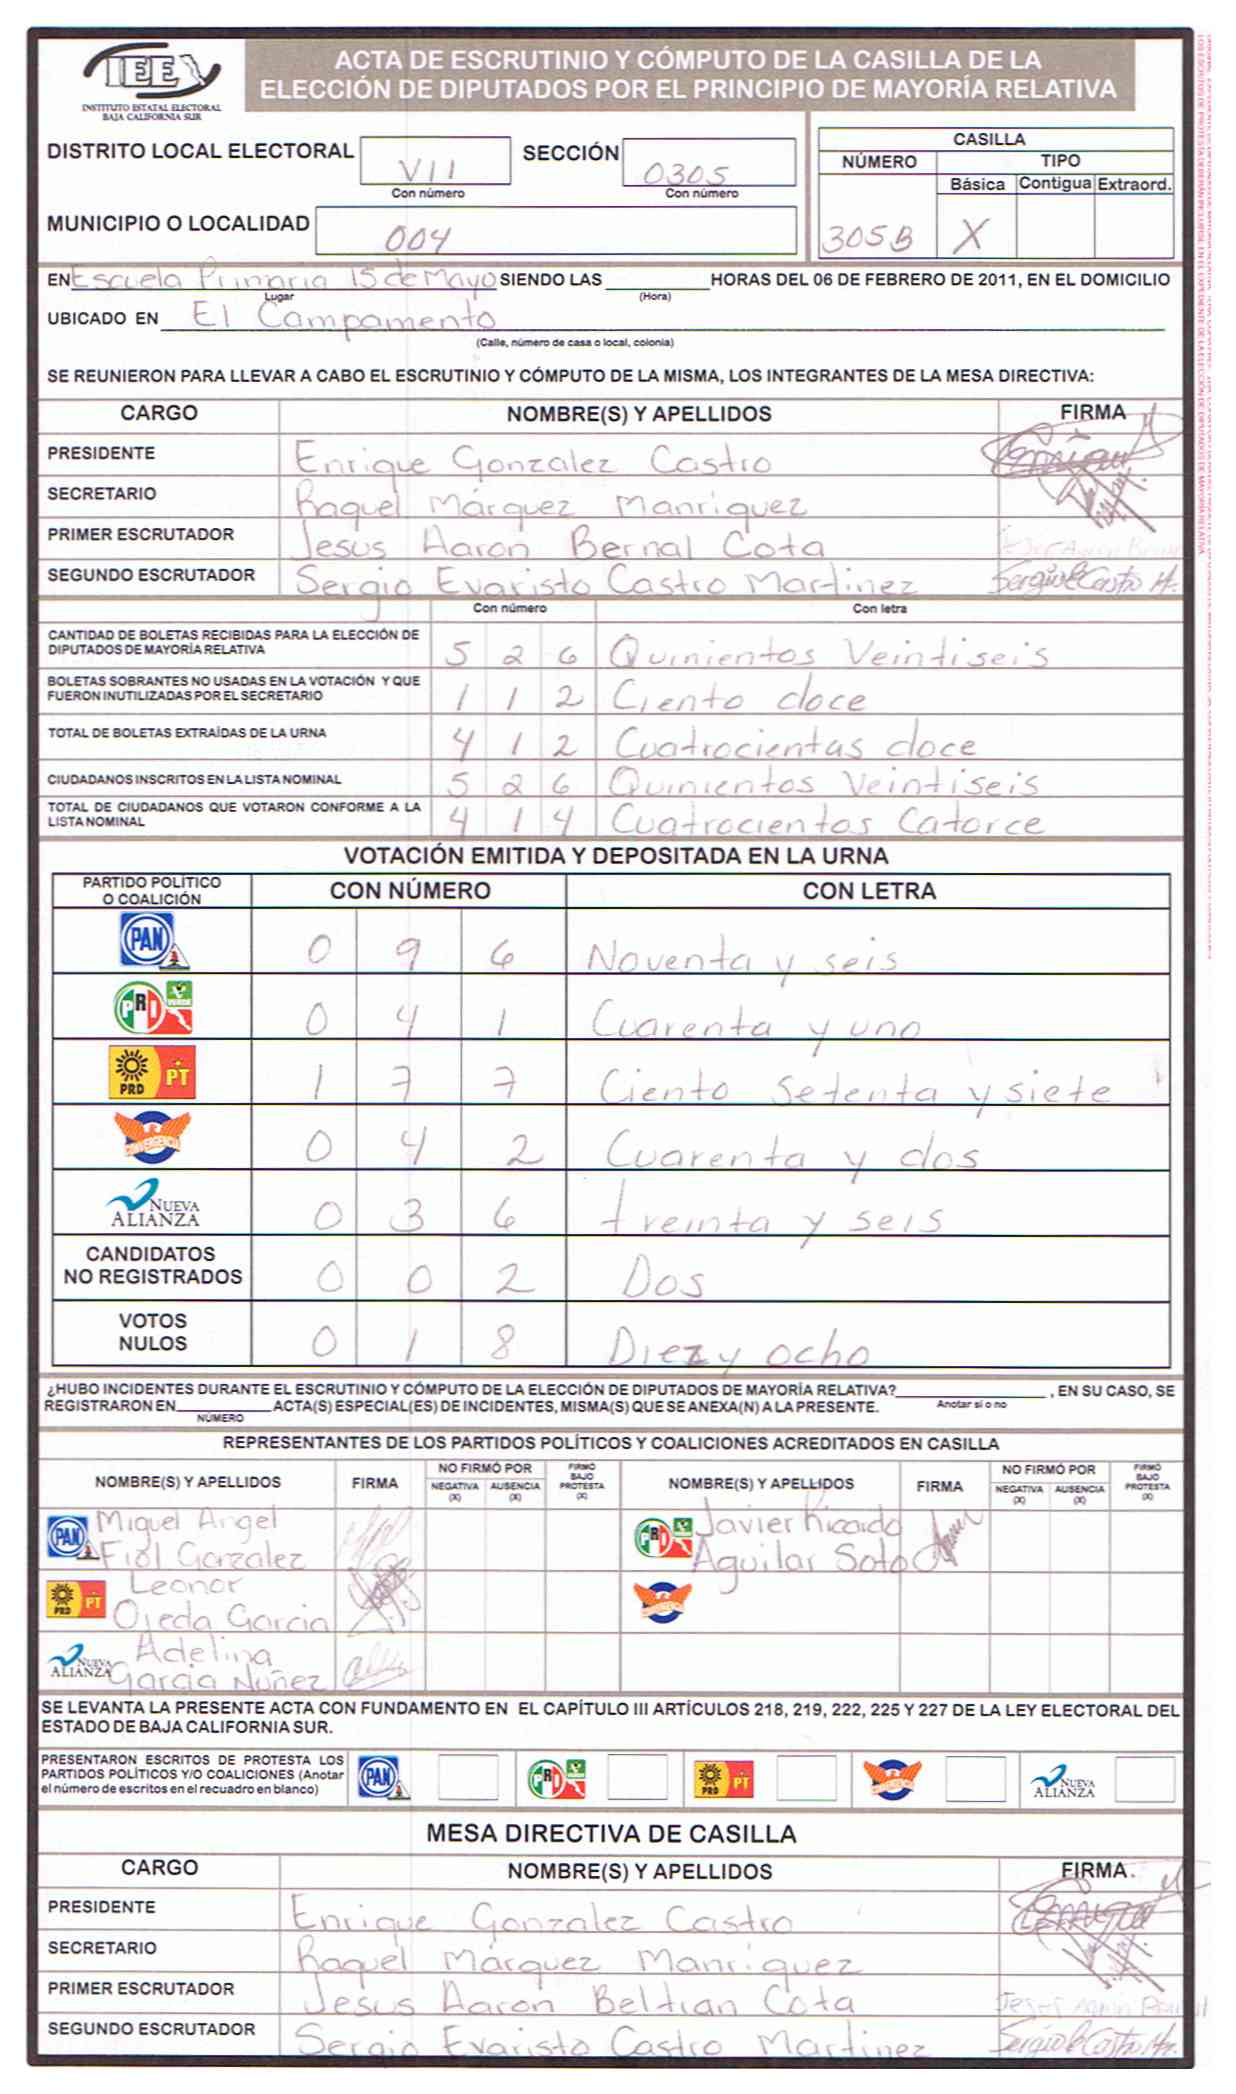 IEE
INSTITUTO ESTATAL ELECTORAL
BAJA CALIFORNIA SUR
ACTA DE ESCRUTINIO Y CÓMPUTO DE LA CASILLA DE LA
ELECCIÓN DE DIPUTADOS POR EL PRINCIPIO DE MAYORÍA RELATIVA
DISTRITO LOCAL ELECTORAL VII SECCIÓN 0305
Con número Con número
MUNICIPIO O LOCALIDAD 004
CASILLA
NÚMERO TIPO
Básica Contigua Extraord.
305B X
EN Escuela Primaria 15 de Mayo SIENDO LAS ________ HORAS DEL 06 DE FEBRERO DE 2011, EN EL DOMICILIO
Lugar (Hora)
UBICADO EN El Campamento
(Calle, número de casa o local, colonia)
SE REUNIERON PARA LLEVAR A CABO EL ESCRUTINIO Y CÓMPUTO DE LA MISMA, LOS INTEGRANTES DE LA MESA DIRECTIVA:
CARGO NOMBRE(S) Y APELLIDOS FIRMA
PRESIDENTE Enrique Gonzalez Castro
SECRETARIO Raquel Márquez Manriquez
PRIMER ESCRUTADOR Jesus Aaron Bernal Cota
SEGUNDO ESCRUTADOR Sergio Evaristo Castro Martinez Sergio E Castro M.
Con número Con letra
CANTIDAD DE BOLETAS RECIBIDAS PARA LA ELECCIÓN DE
DIPUTADOS DE MAYORÍA RELATIVA 5 2 6 Quinientos Veintiseis
BOLETAS SOBRANTES NO USADAS EN LA VOTACIÓN Y QUE
FUERON INUTILIZADAS POR EL SECRETARIO 1 1 2 Ciento doce
TOTAL DE BOLETAS EXTRAÍDAS DE LA URNA 4 1 2 Cuatrocientas doce
CIUDADANOS INSCRITOS EN LA LISTA NOMINAL 5 2 6 Quinientos Veintiseis
TOTAL DE CIUDADANOS QUE VOTARON CONFORME A LA
LISTA NOMINAL 4 1 4 Cuatrocientos Catorce
VOTACIÓN EMITIDA Y DEPOSITADA EN LA URNA
PARTIDO POLÍTICO
O COALICIÓN CON NÚMERO CON LETRA
PAN 0 9 6 Noventa y seis
PRI VERDE 0 4 1 Cuarenta y uno
PRD PT 1 7 7 Ciento Setenta y siete
CONVERGENCIA 0 4 2 Cuarenta y dos
NUEVA ALIANZA 0 3 6 treinta y seis
CANDIDATOS
NO REGISTRADOS 0 0 2 Dos
VOTOS
NULOS 0 1 8 Diez y ocho
¿HUBO INCIDENTES DURANTE EL ESCRUTINIO Y CÓMPUTO DE LA ELECCIÓN DE DIPUTADOS DE MAYORÍA RELATIVA?________ , EN SU CASO, SE
REGISTRARON EN________ ACTA(S) ESPECIAL(ES) DE INCIDENTES, MISMA(S) QUE SE ANEXA(N) A LA PRESENTE. Anotar sí o no
NÚMERO
REPRESENTANTES DE LOS PARTIDOS POLÍTICOS Y COALICIONES ACREDITADOS EN CASILLA
NOMBRE(S) Y APELLIDOS FIRMA NO FIRMÓ POR NEGATIVA (X) AUSENCIA (X) FIRMÓ BAJO PROTESTA (X) NOMBRE(S) Y APELLIDOS FIRMA NO FIRMÓ POR NEGATIVA (X) AUSENCIA (X) FIRMÓ BAJO PROTESTA (X)
PAN Miguel Angel PRI VERDE Javier Ricardo
Fiol Gonzalez Aguilar Soto
PRD PT Leonor CONVERGENCIA
Ojeda Garcia
NUEVA ALIANZA Adelina
Garcia Nuñez
SE LEVANTA LA PRESENTE ACTA CON FUNDAMENTO EN EL CAPÍTULO III ARTÍCULOS 218, 219, 222, 225 Y 227 DE LA LEY ELECTORAL DEL
ESTADO DE BAJA CALIFORNIA SUR.
PRESENTARON ESCRITOS DE PROTESTA LOS
PARTIDOS POLÍTICOS Y/O COALICIONES (Anotar
el número de escritos en el recuadro en blanco) PAN PRI VERDE PRD PT CONVERGENCIA NUEVA ALIANZA
MESA DIRECTIVA DE CASILLA
CARGO NOMBRE(S) Y APELLIDOS FIRMA
PRESIDENTE Enrique Gonzalez Castro
SECRETARIO Raquel Márquez Manriquez
PRIMER ESCRUTADOR Jesus Aaron Beltran Cota
SEGUNDO ESCRUTADOR Sergio Evaristo Castro Martinez Sergio E Castro M.